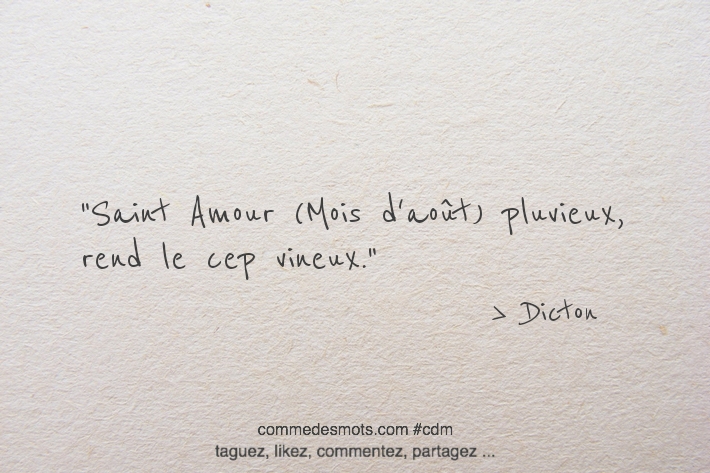 "Saint Amour (Mois d'août) pluvieux,
rend le cep vineux."
> Dicton
commedesmots.com #cdm
taguez, likez, commentez, partagez ...